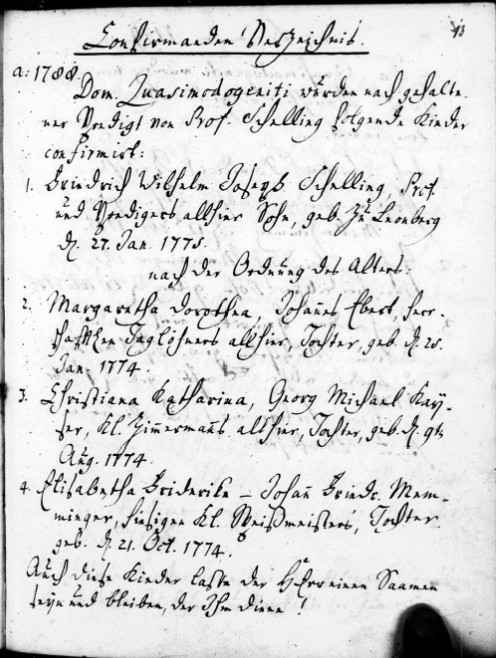 93
Confirmanden Verzeichnis.
a: 1788.
Dom. Quasimodogeniti wurden nach gehalte-
ner Predigt von Prof. Schelling folgende Kinder
confirmirt:
1. Friedrich Wilhelm Joseph Schelling, Prof.
und Predigers allhier Sohn, geb. zu Leonberg
d. 27. Jan. 1775.
nach der Ordnung des Alters:
2. Margaretha Dorothea, Johannes Ebert, herr-
schafftlen Taglöhners allhier, Tochter, geb. d. 25.
Jan. 1774.
3. Christiana Katharina, Georg Michael Kay-
ser, Kl. Zimmermanns allhier, Tochter, geb. d. 9ten
Aug. 1774.
4. Elisabetha Friderike – Johann Friedr. Mem-
minger, hiesigen Kl. Speißmeisters, Tochter
geb. d. 21. Oct. 1774.
Auch diese Kinder lasse der HErr einen Saamen
seyn und bleiben, der Ihm diene!